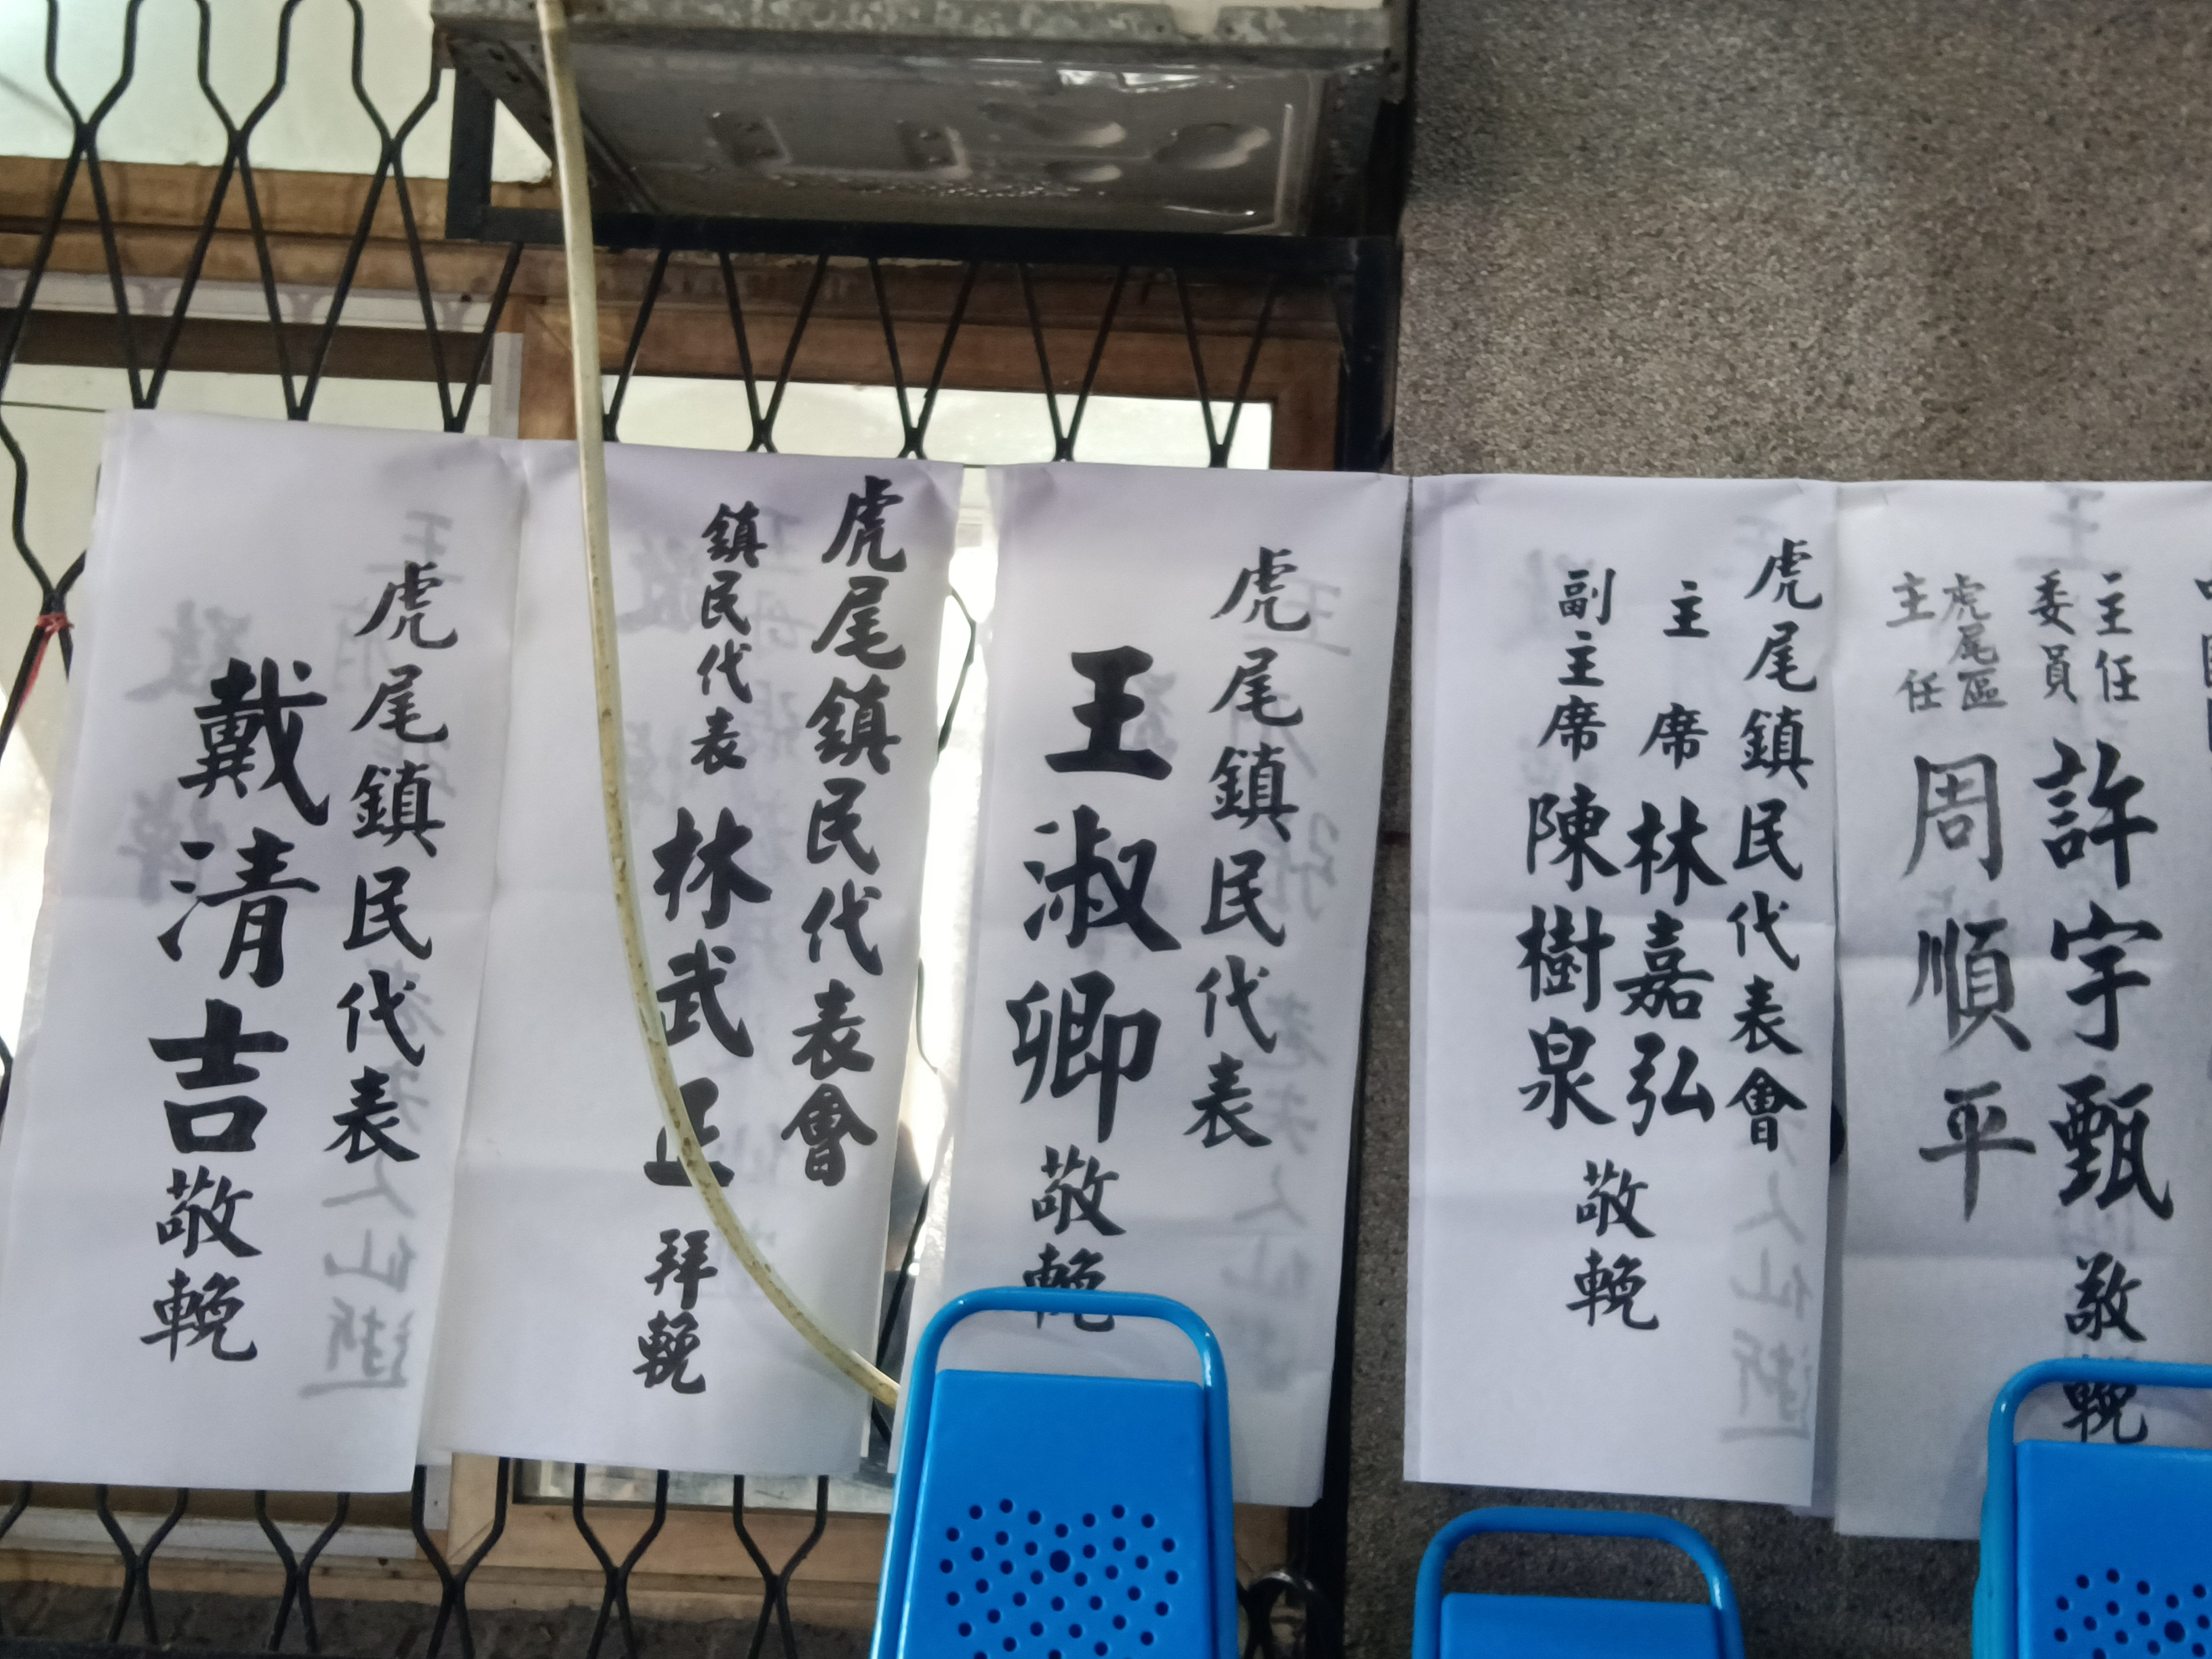 主任
委員
許宇甄
敬輓
虎尾區
主任
周順平
虎尾鎮民代表會
主席林嘉弘
副主席陳樹泉
敬輓
虎尾鎮民代表
王淑卿敬輓
虎尾鎮民代表會
鎮民代表林武正拜輓
虎尾鎮民代表
戴清吉敬輓